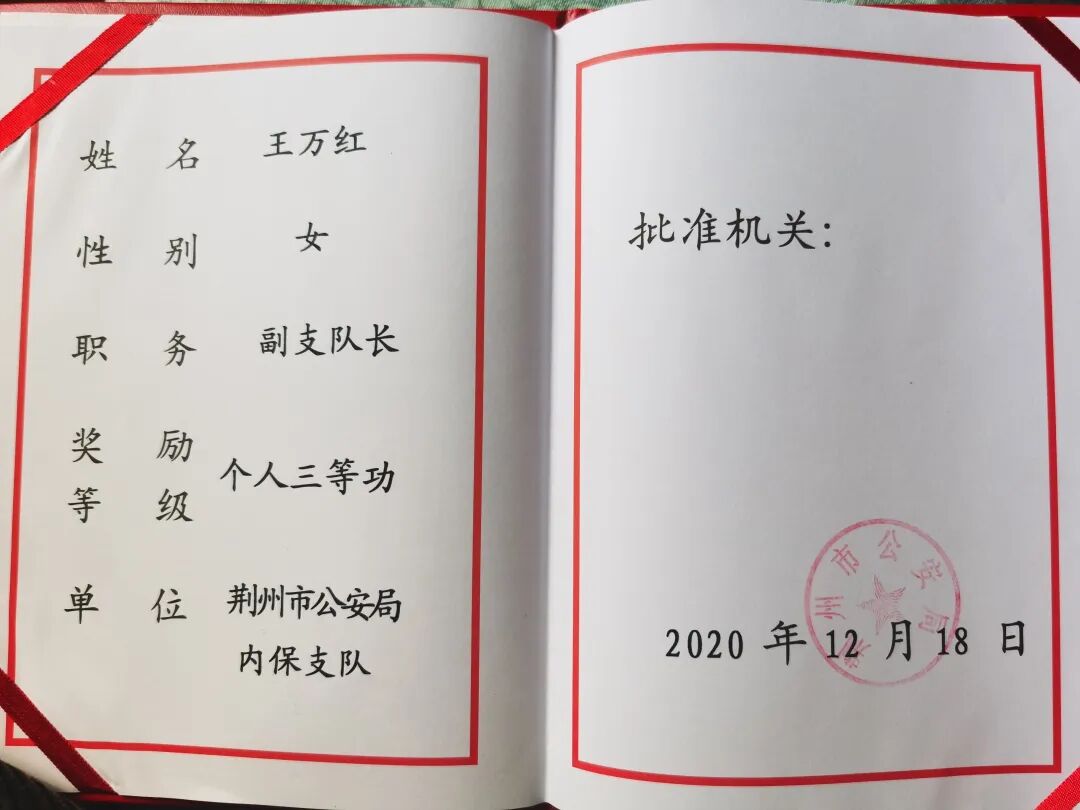 姓名 王万红
性别 女
职务 副支队长
奖励
等级 个人三等功
单位 荆州市公安局
内保支队
批准机关：
荆州市公安局
2020 年 12 月 18 日